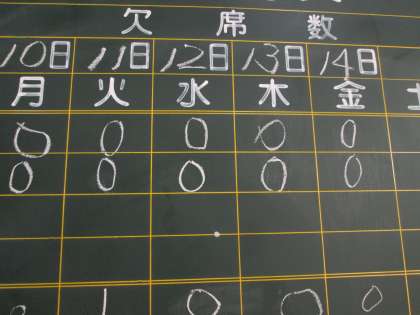 欠席数
10日 11日 12日 13日 14日
月 火 水 木 金
0 0 0 0 0
0 0 0 0 0
1 0 0 0